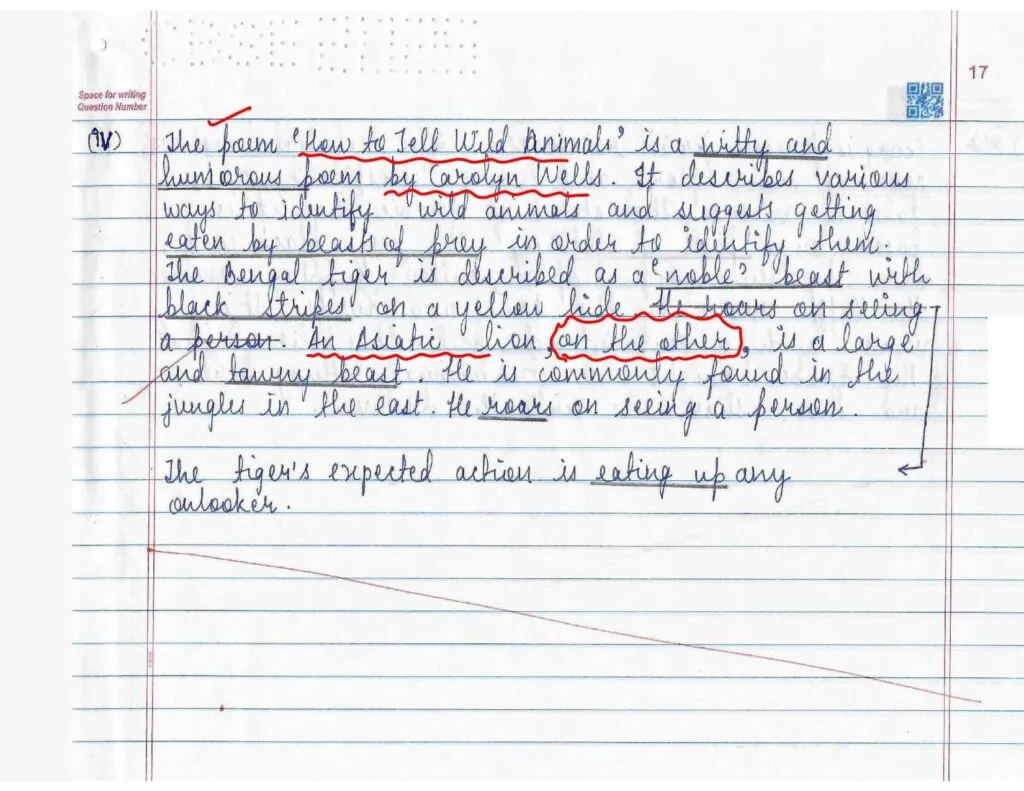 17
Space for writing
Question Number
(IV) The poem 'How to Tell Wild Animals' is a witty and
humorous poem by Carolyn Wells. It describes various
ways to identify wild animals and suggests getting
eaten by beasts of prey in order to identify them.
The Bengal tiger is described as a 'noble' beast with
black stripes on a yellow hide He roars on seeing
a person. An Asiatic lion, on the other, is a large
and tawny beast. He is commonly found in the
jungles in the east. He roars on seeing a person.
The tiger's expected action is eating up any
onlooker.